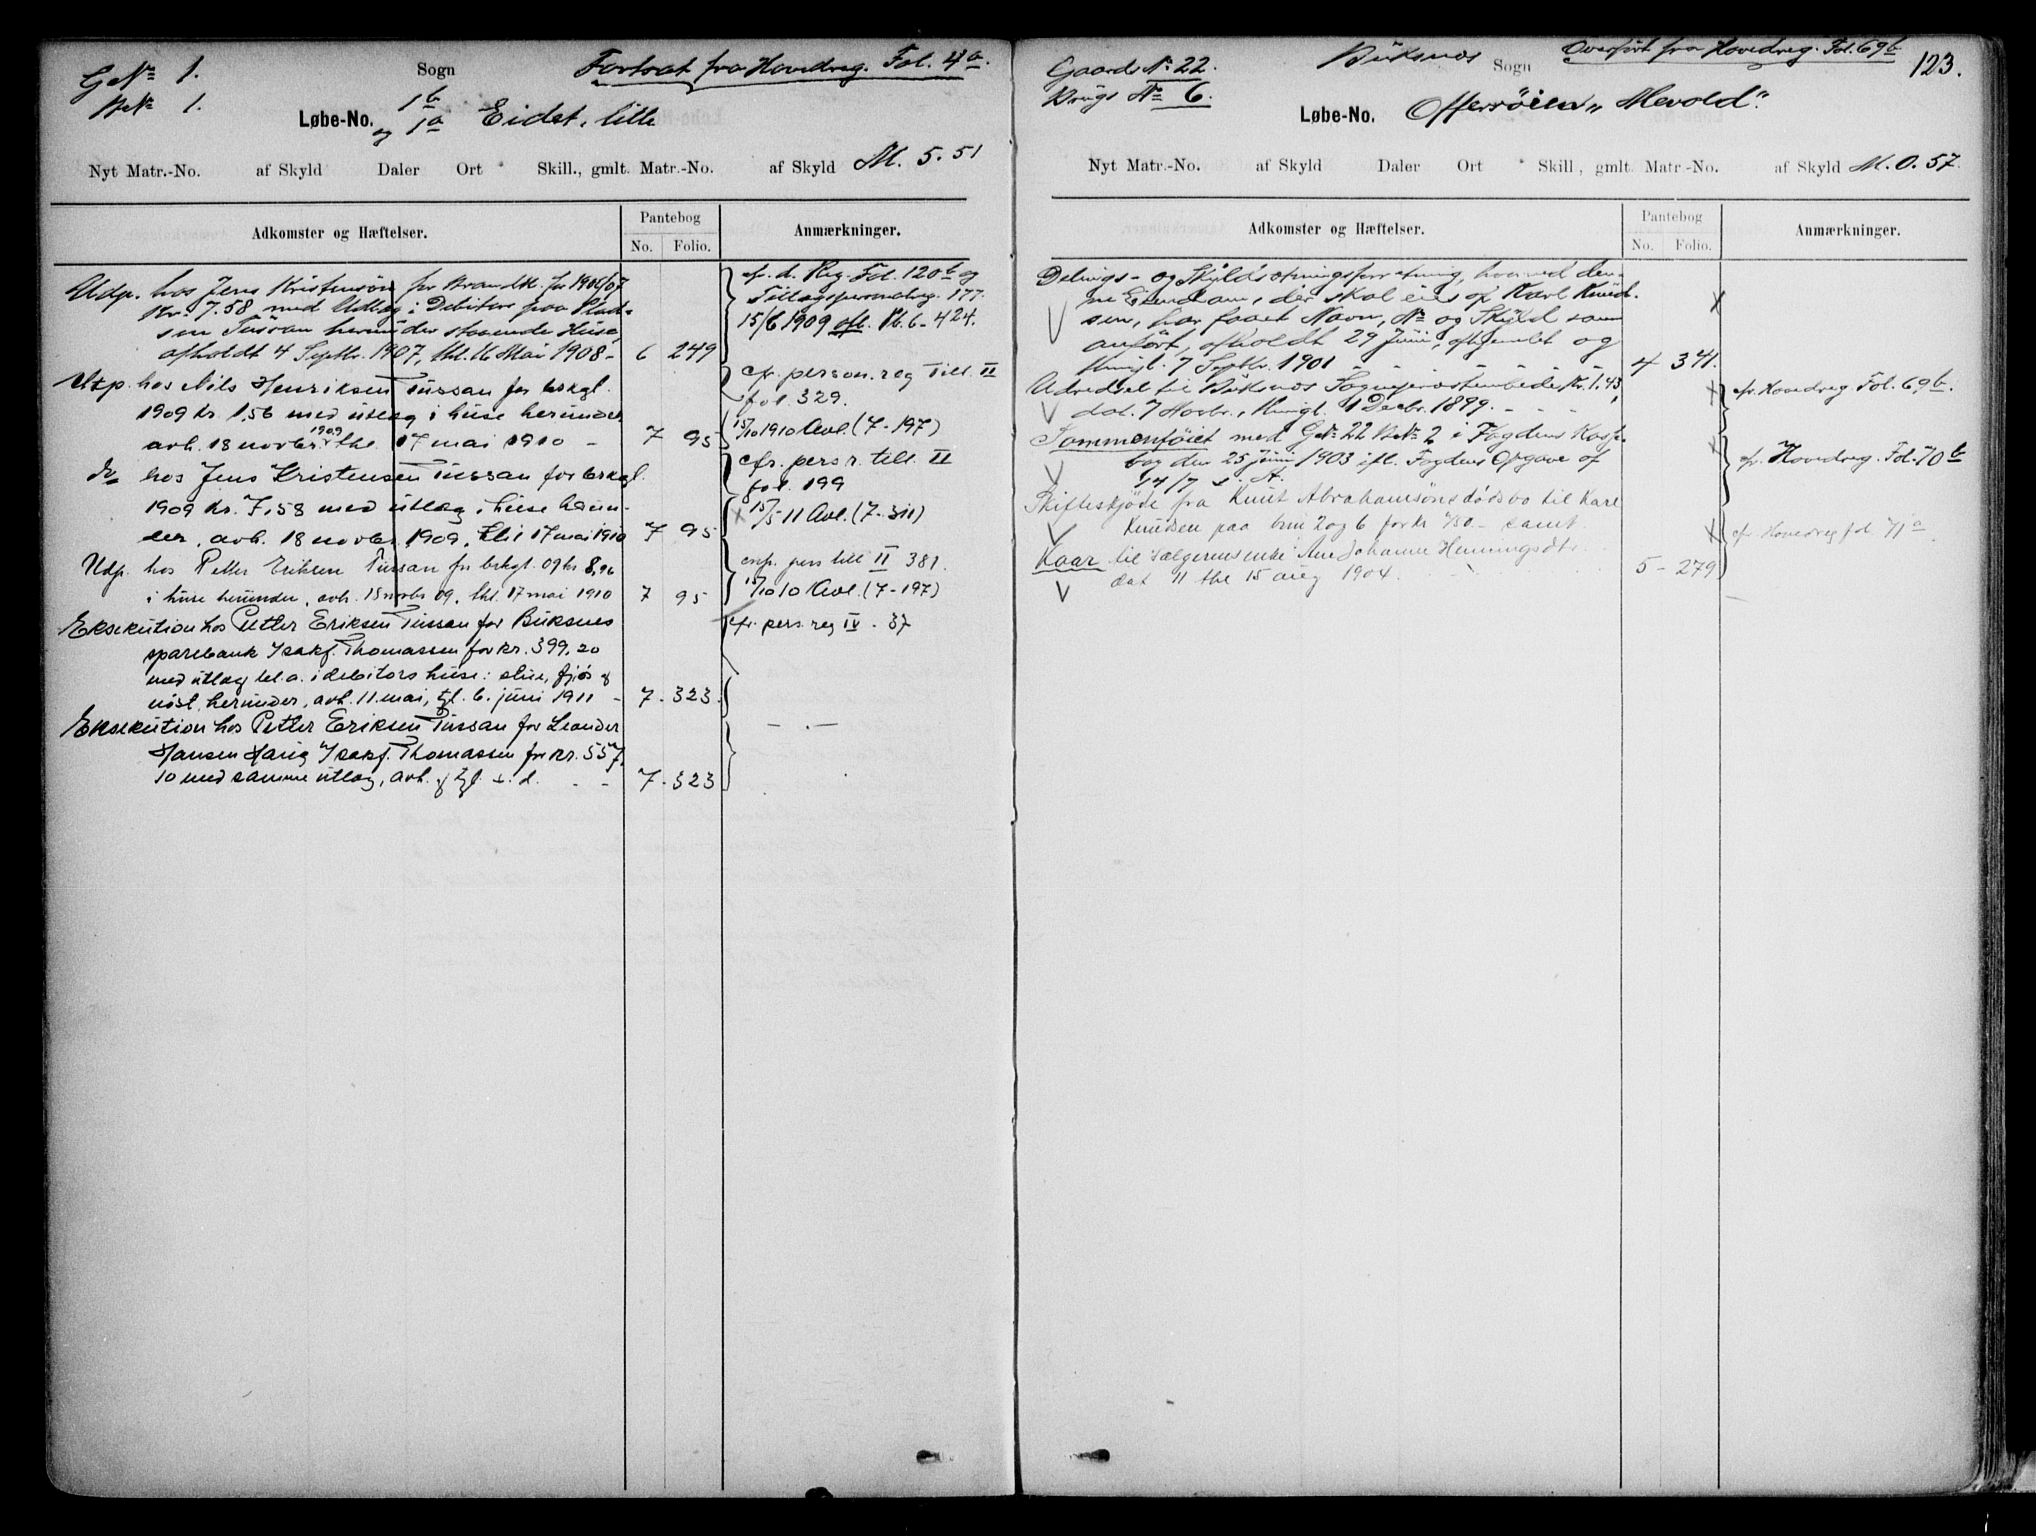 G№ 1.
B№ 1.
Sogn
Fortsat fra Hovedreg. Fol. 4a.
Løbe-No. 1b og 1a Eidet, lille
Nyt Matr.-No. af Skyld Daler Ort Skill., gmlt. Matr.-No. af Skyld M. 5.51
Adkomster og Hæftelser.
Pantebog
No. Folio.
Anmærkninger.
Udp. hos Jens Kristensen for Brandk. for 1906/07
Kr. 7.58 med Udlæg i Debitors paa Plad-
sen Tussan herunder staaende Huse,
afholdt 4 Septbr. 1907, thl. 16 Mai 1908 - 6 249
cfr. d. Reg. Fol. 120b og
Tillægspersonalreg. 177.
15/6 1909 afl. Pb. 6 - 424.
Utp. hos Nils Henriksen Tussan for brkgt.
1909 kr. 1,56 med utlæg i huse herunder,
avh. 18 novbr. 1909, thl. 17 mai 1910 - 7 95
cfr. person. reg Till. II
fol. 329.
15/10 1910 Avl. (7-197)
do hos Jens Kristensen Tussan for brkgt.
1909 kr. 7,58 med utlæg i huse herun-
der, avh. 18 novbr. 1909, thl 17 mai 1910 7 95
cfr. pers r. till. II
fol. 199
15/5 11 Avl. (7-311)
Utp. hos Petter Eriksen Tussan for brkgt. 09 kr 8,96
i huse herunder, avh. 18 novbr 09, thl. 17 mai 1910 7 95
cnfr. pers till II 381.
15/10 10 Avl. (7-197)
Eksekution hos Petter Eriksen Tussan for Buksnes
sparebank v/sakf. Thomassen for kr. 399,20
med utlæg bl.a. i debitors huse: stue, fjøs og
nøst, herunder, avh. 11. mai, tgl. 6. juni 1911 - 7 - 323.
cfr. pers. reg IV - 37
Eksekution hos Petter Eriksen Tussan for Leander
Hansen Haug v/sakf. Thomassen for kr. 557,
10 med samme utlæg, avh. og tgl. s. d. - - 7 - 323
- " -
Gaards № 22.
Brugs № 6.
Buksnes Sogn
Overført fra Hovedreg. Fol. 69b
123.
Løbe-No. Offersøien „Mevold".
Nyt Matr.-No. af Skyld Daler Ort Skill., gmlt. Matr.-No. af Skyld M. 0.57.
Adkomster og Hæftelser.
Pantebog
No. Folio.
Anmærkninger.
Delings- og Skyldsætningsforretning, hvorved den-
ne Eiendom, der skal eies af Karl Knud-
sen, har faaet Navn, № og Skyld som
anført, afholdt 29 Juni, afhjemlet og
thingl. 7 Septbr. 1901 - - - - 4 341.
Udredsel til Buksnes Sognepræstembede Kr. 1.43,
dat. 7 Novbr., thingl. 1 Decbr. 1899. - - -
cfr. Hovedreg Fol. 69b.
Sammenføiet med G№ 22 B№ 2 i Fogdens Kasse-
bog den 25 Juni 1903 ifl. Fogdens Opgave af
14/7 s. A.
cfr. Hovedreg. Fol. 70b
Skifteskjøde fra Knut Abrahamsøns dødsbo til Karl
Knudsen paa brn 2 og 6 for kr 450.- samt
Kaar til sælgerens enke Ane Johanne Henningsdtr.
dat 11 thl 15 aug 1904. - 5 - 279
cfr. Hovedreg fol 71a